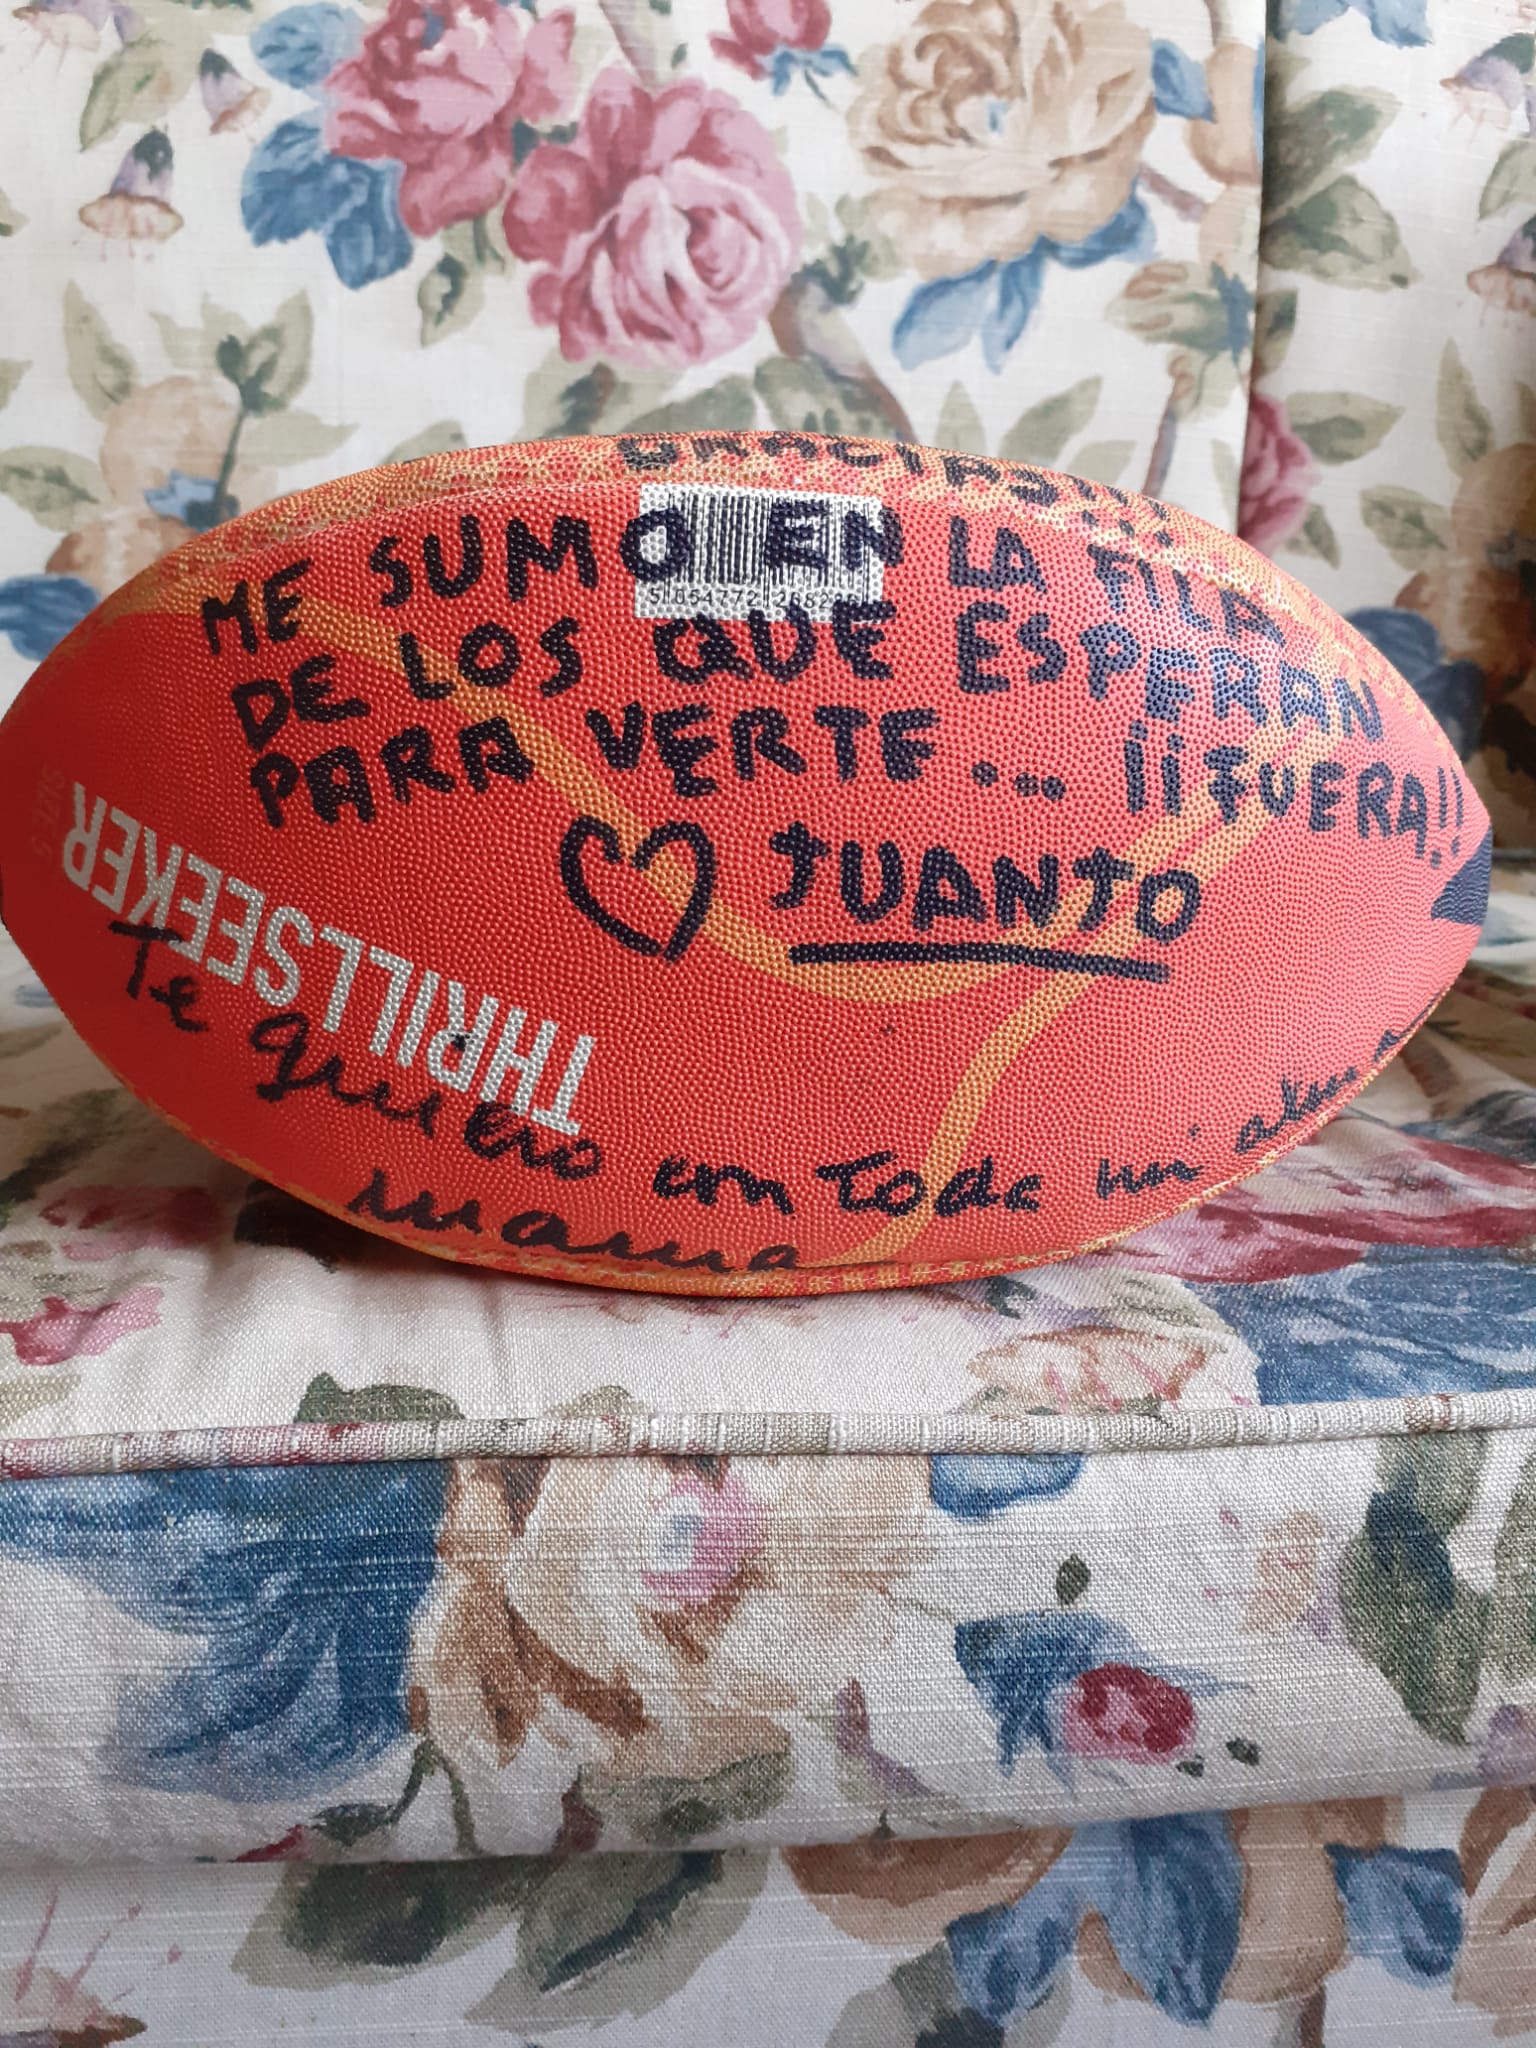 GRACIAS!!
ME SUMO EN LA FILA
DE LOS QUE ESPERAN
PARA VERTE... ¡¡FUERA!!
JUANJO
THRILLSEEKER
Te quiero con toda mi alma
mama
SIZE 5